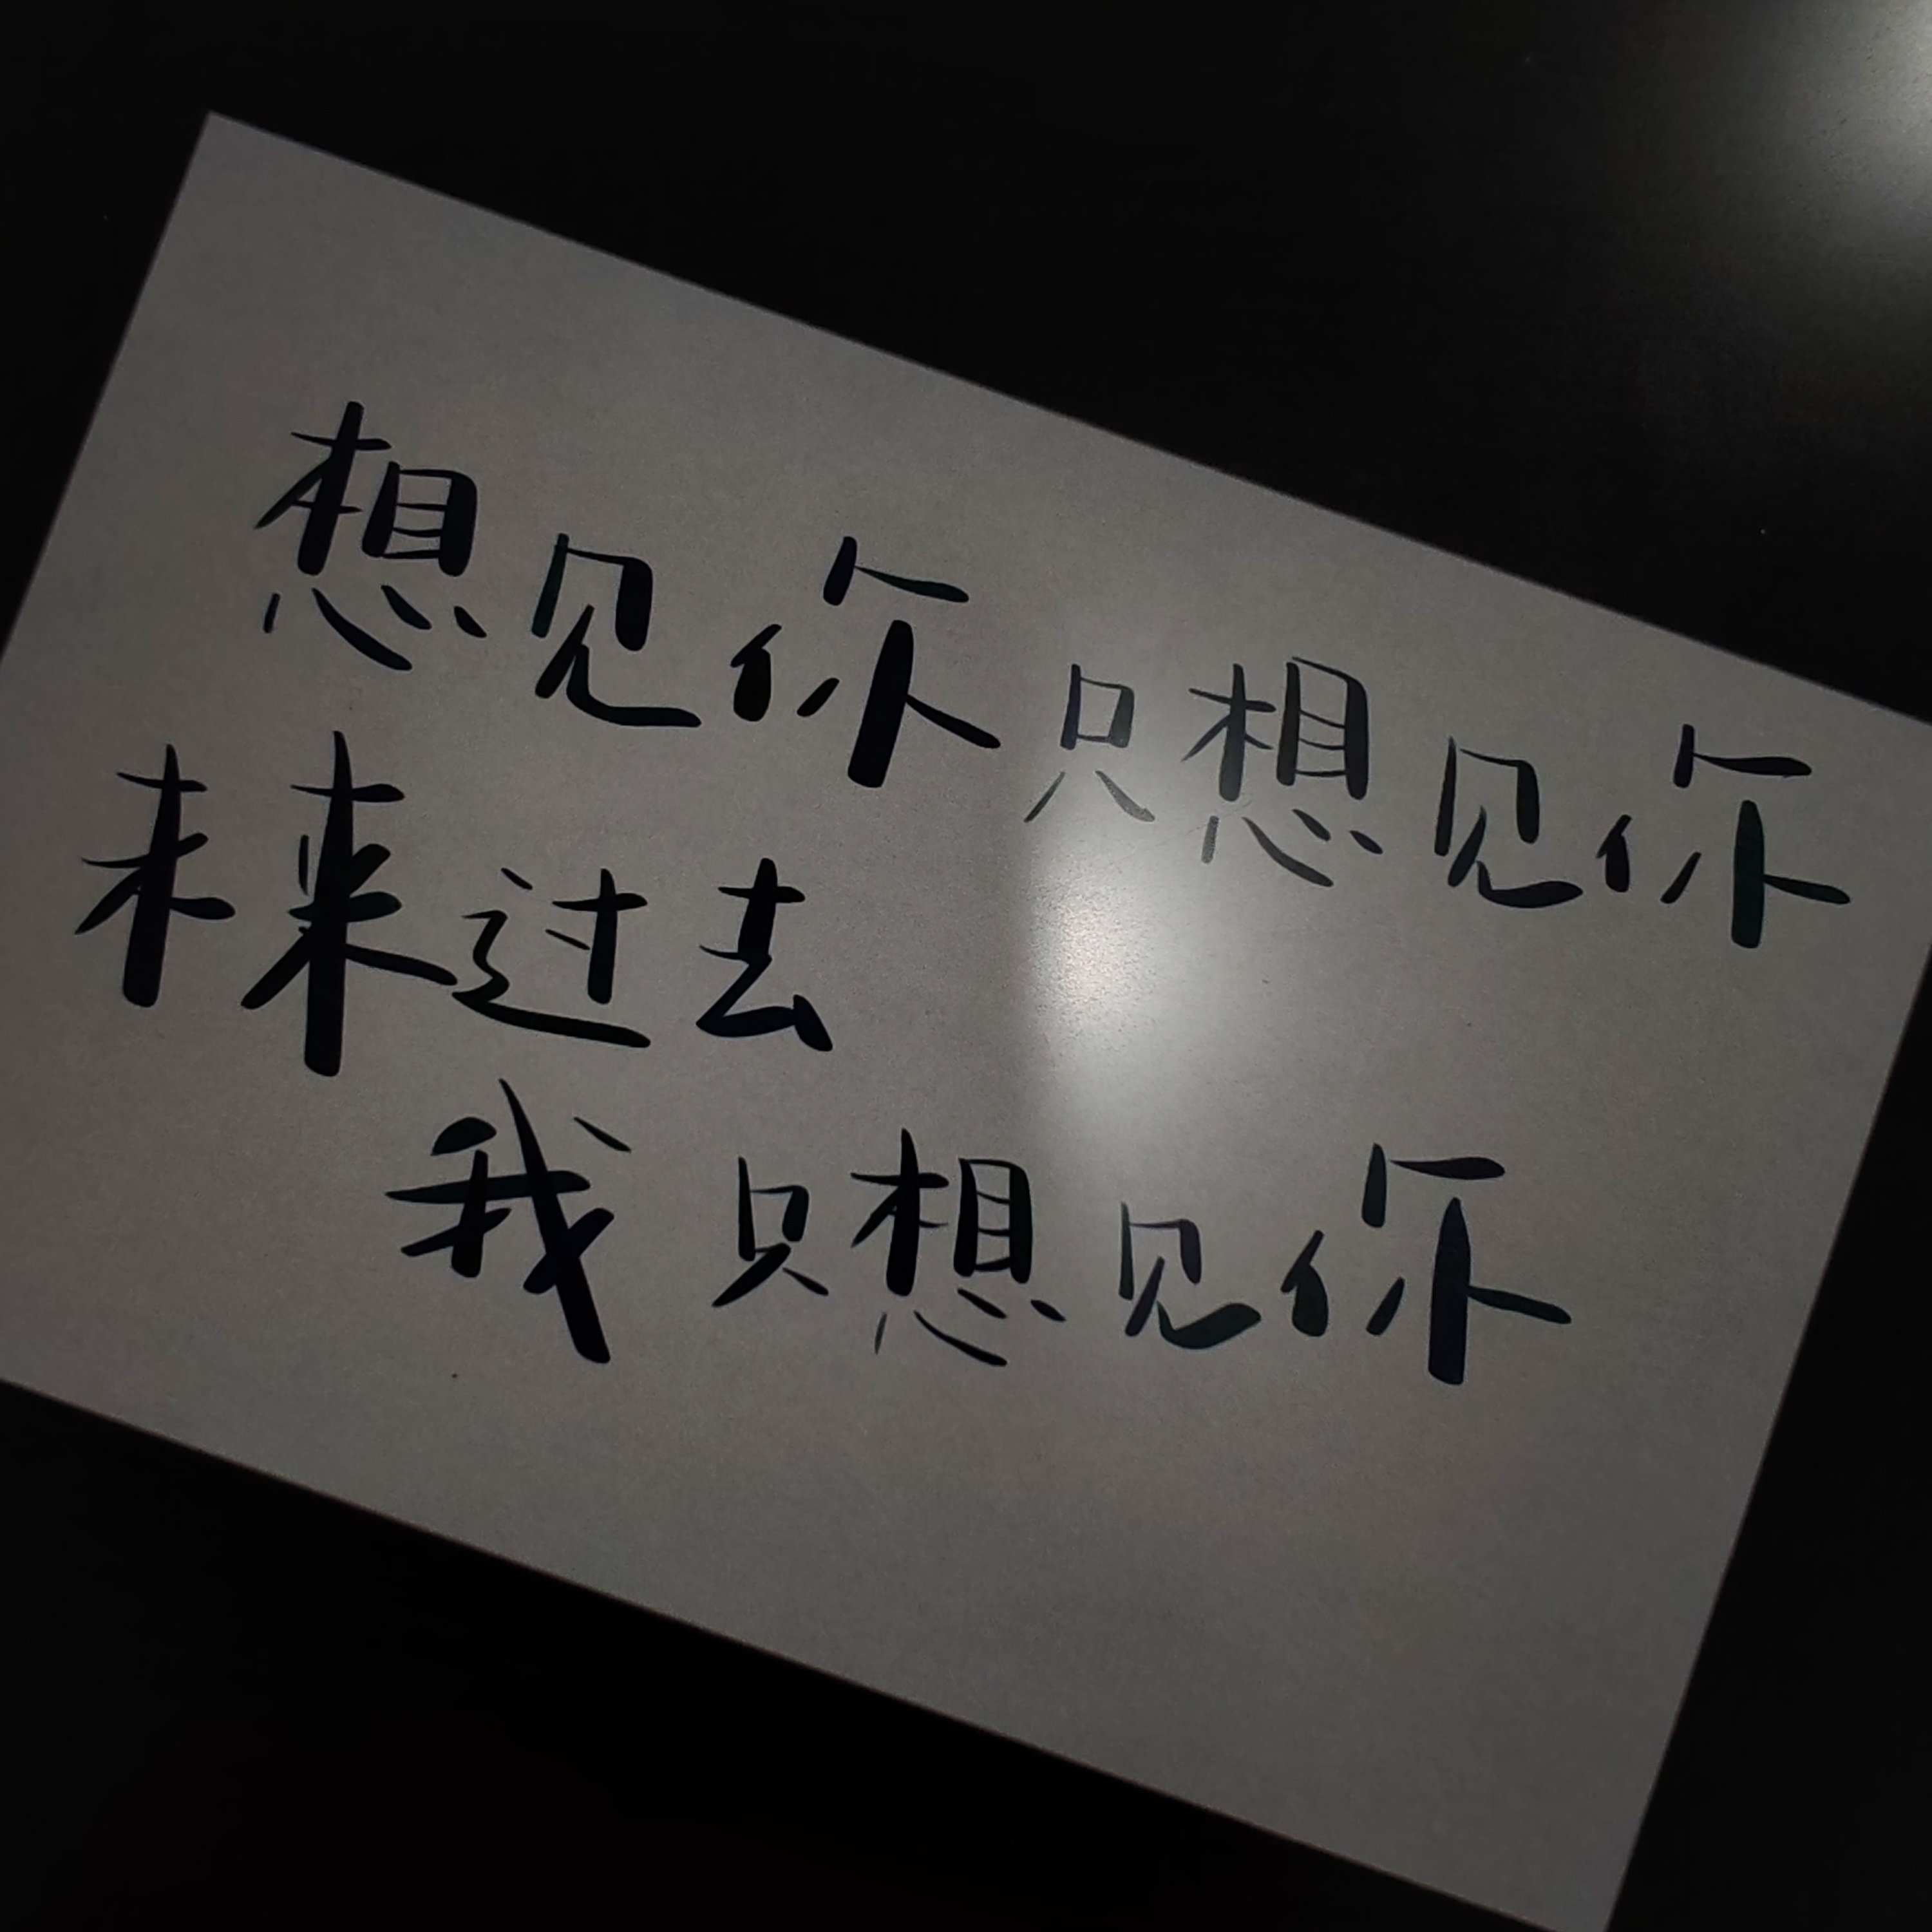 想见你只想见你
未来过去
我只想见你